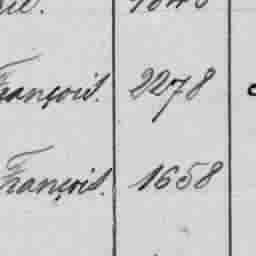 François. 2278
François. 1658